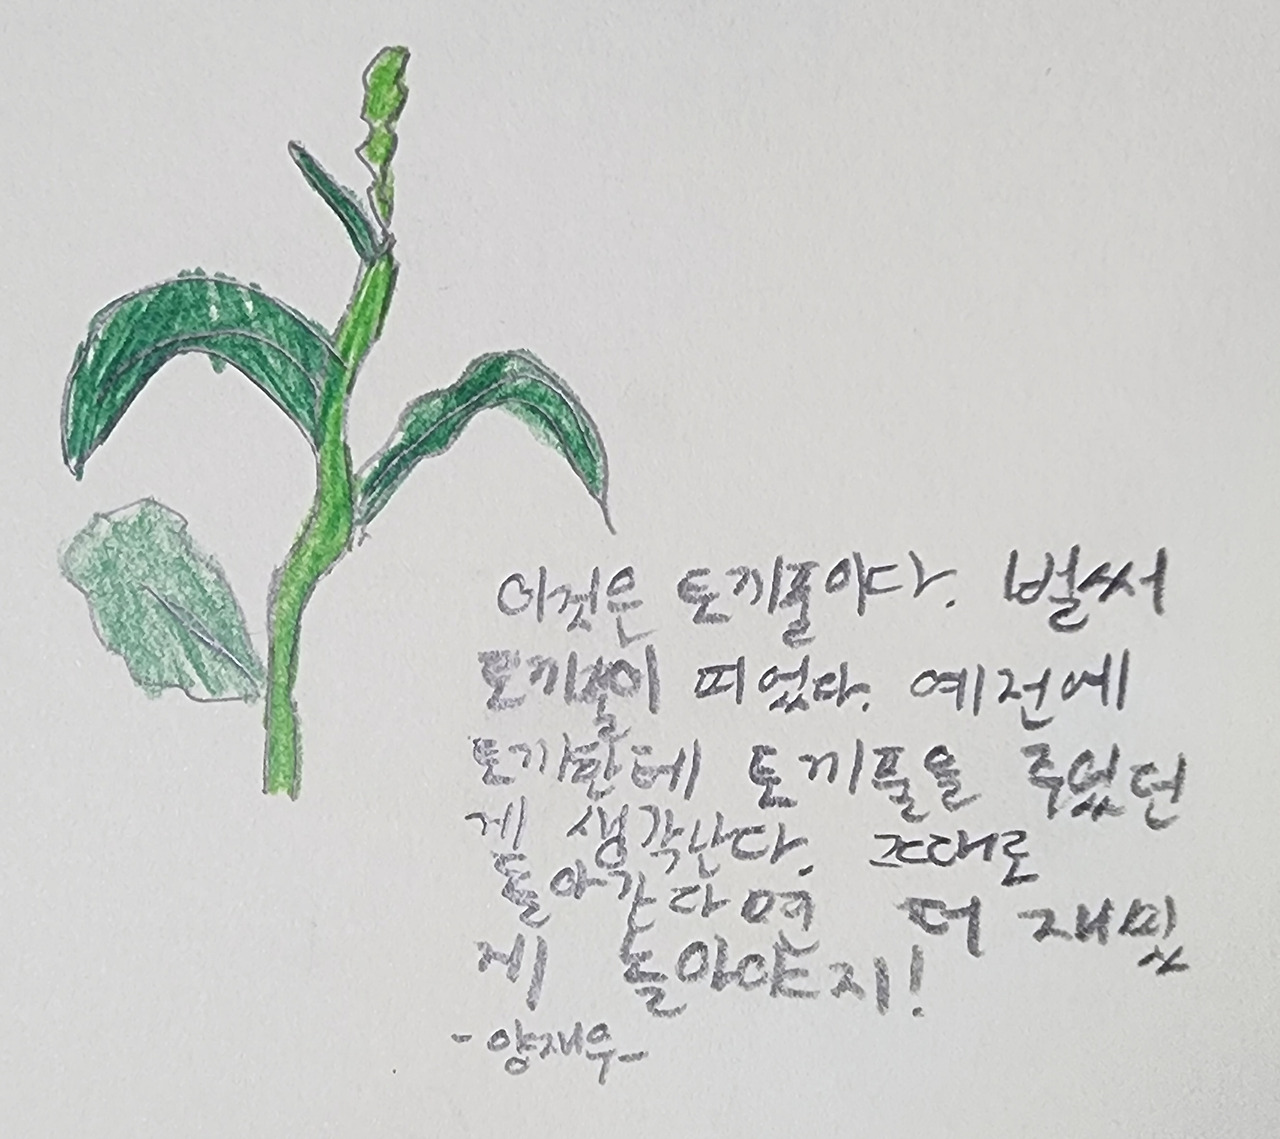 이것은 토끼풀이다. 벌써
토끼풀이 피었다. 예전에
토끼한테 토끼풀을 주었던
게 생각난다. 그대로
돌아간다면 더 재밌
게 놀아야지!
-양재우-